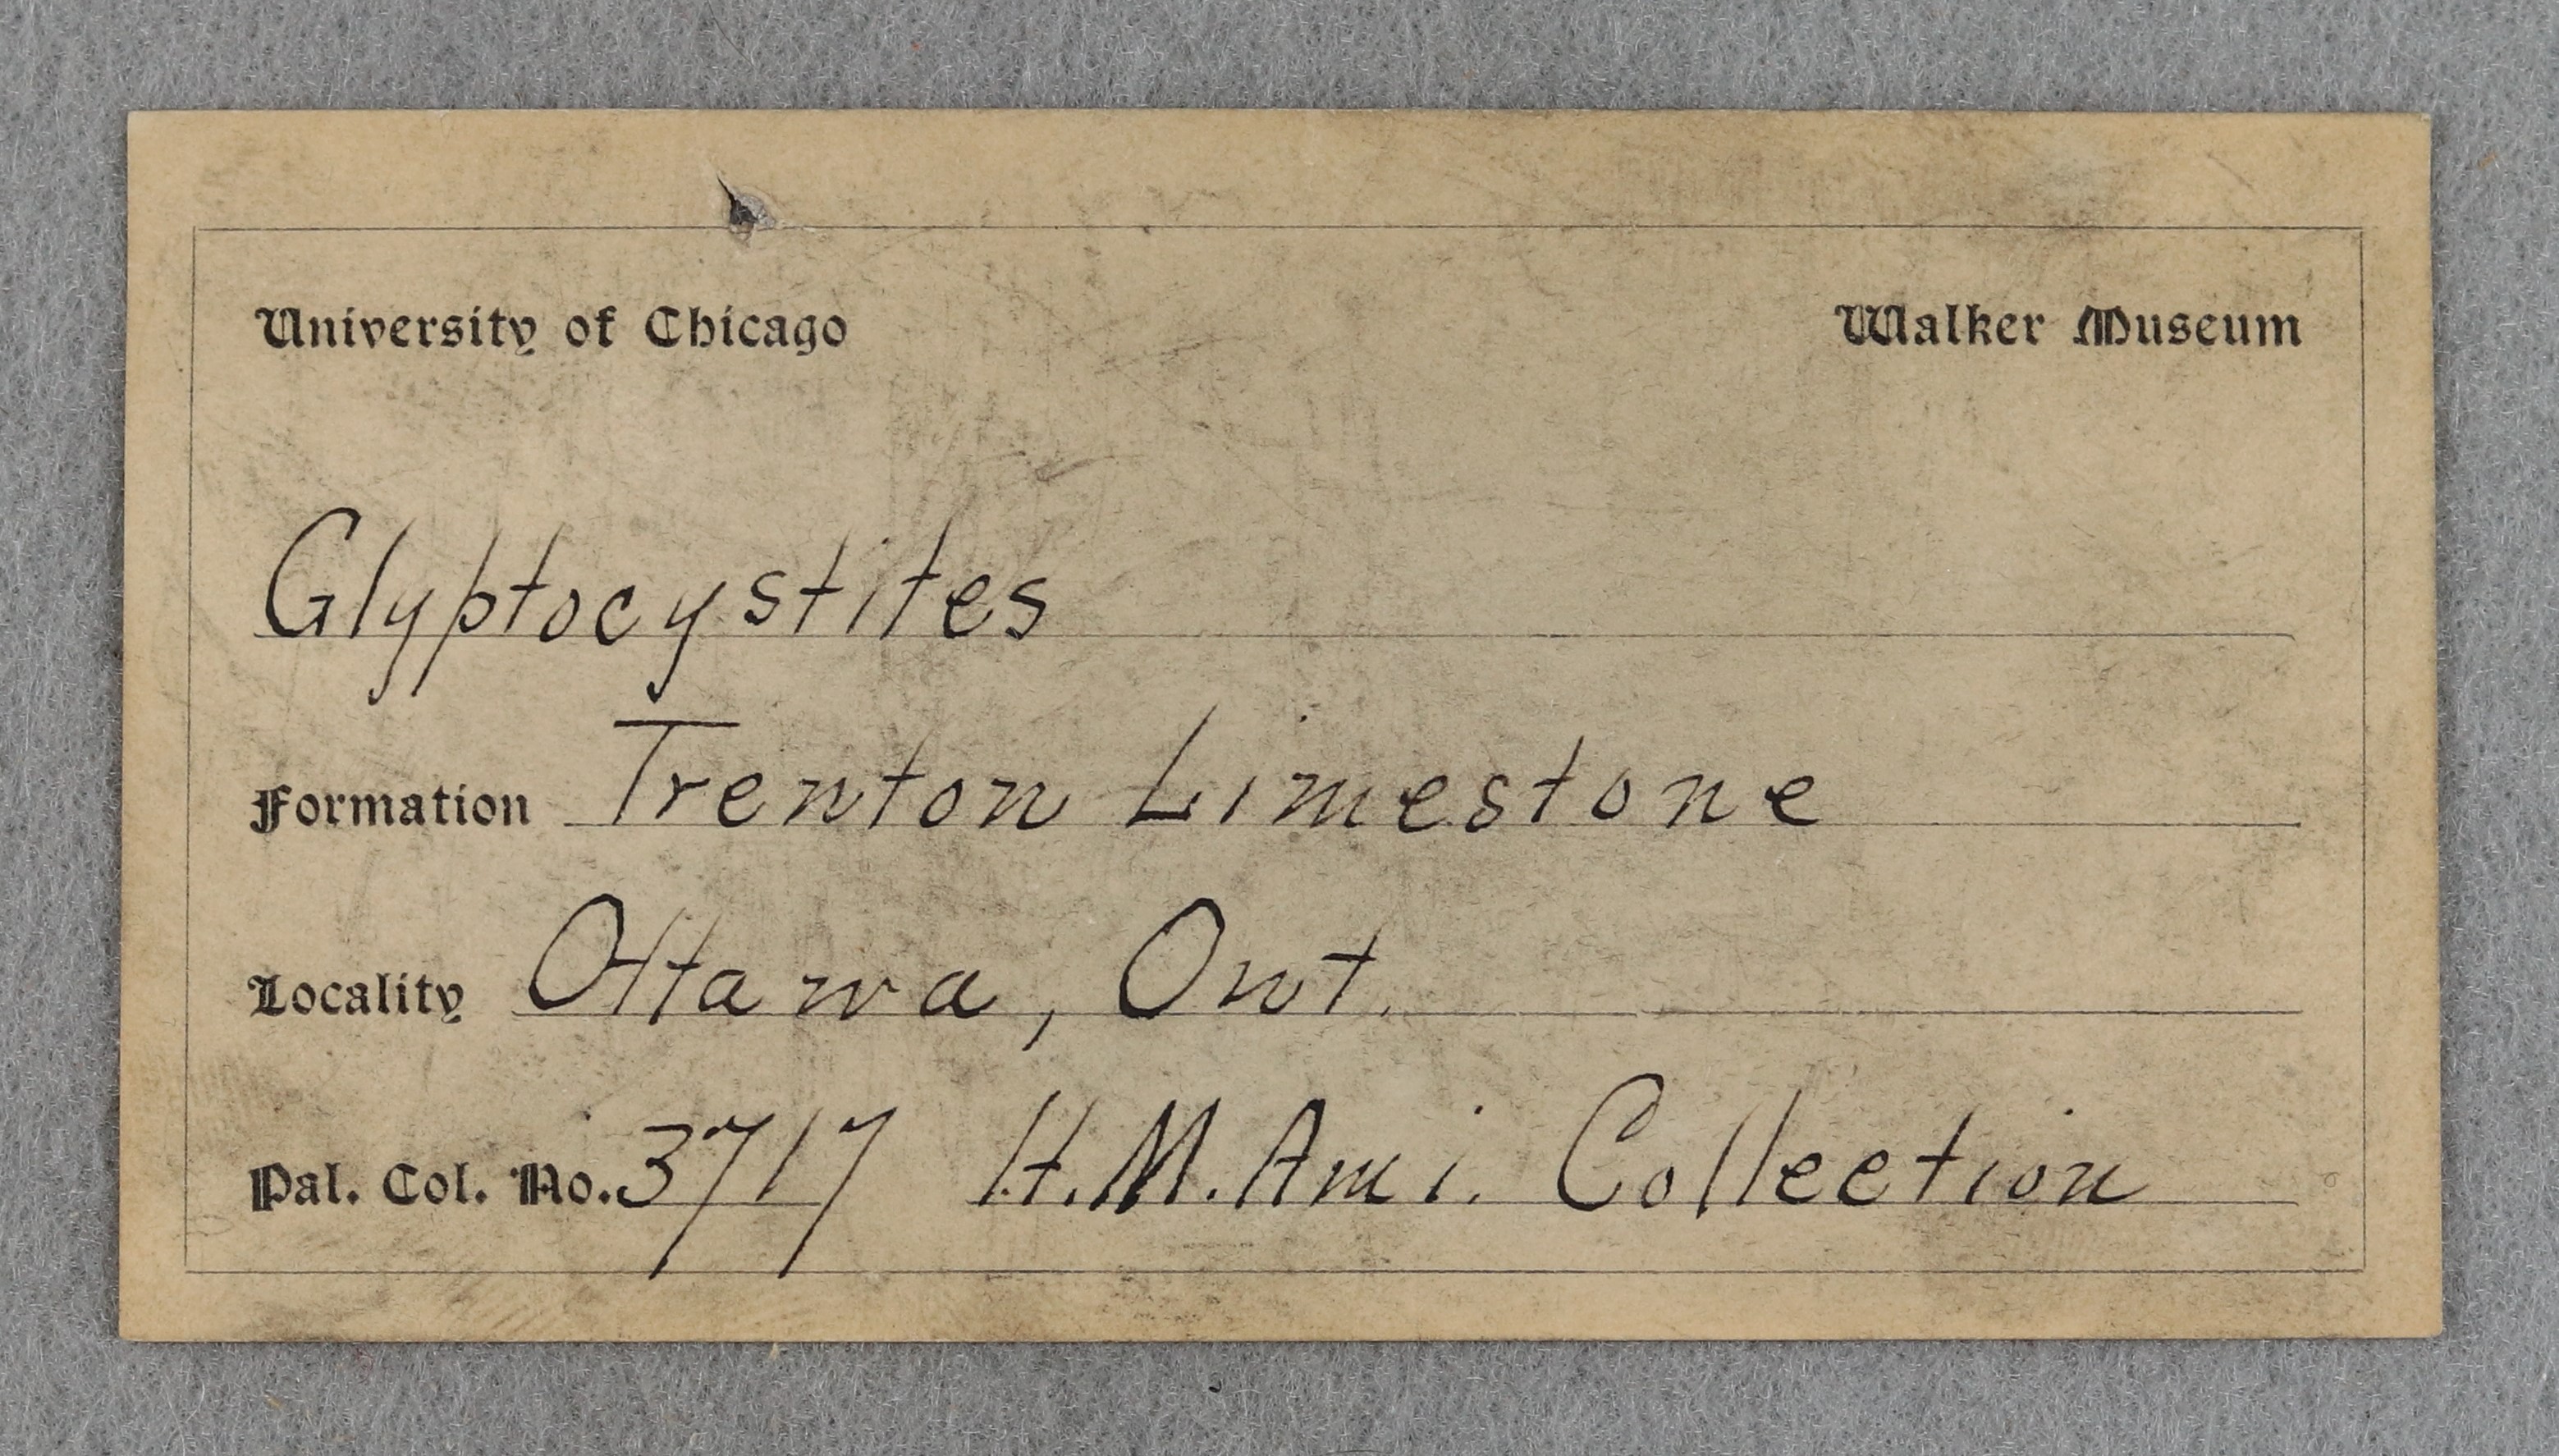 University of Chicago Walker Museum
Glyptocystites
Formation Trenton Limestone
Locality Ottawa, Ont.
Pal. Col. No. 3717 H. M. Ami. Collection